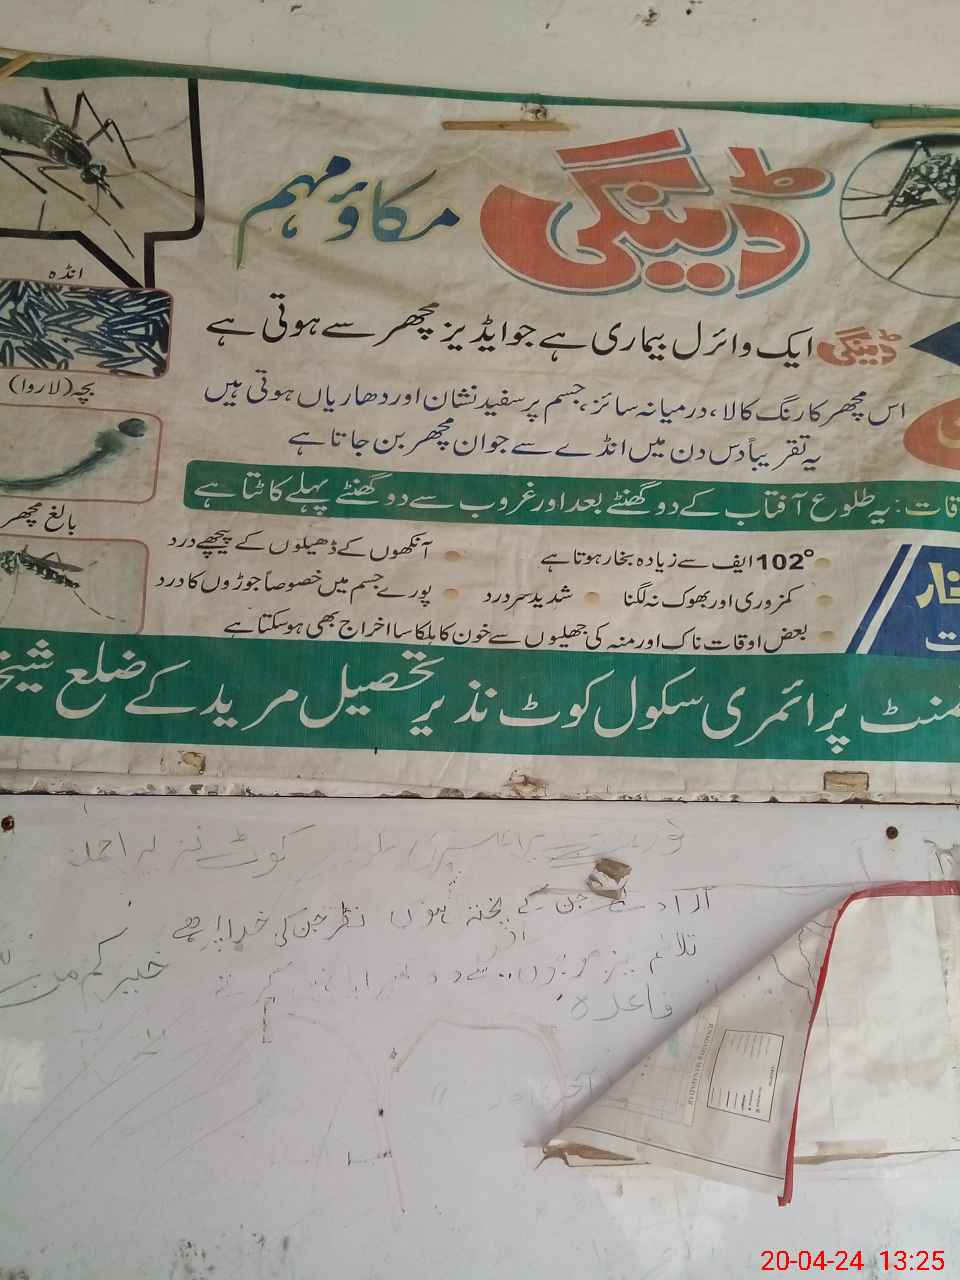 ڈینگی مکاؤ مہم
انڈہ
ڈینگی ایک وائرل بیماری ہے جو ایڈیز مچھر سے ہوتی ہے
بچہ (لاروا)
اس مچھر کا رنگ کالا، درمیانہ سائز، جسم پر سفید نشان اور دھاریاں ہوتی ہیں
یہ تقریباً دس دن میں انڈے سے جوان مچھر بن جاتا ہے
قات: یہ طلوع آفتاب کے دو گھنٹے بعد اور غروب سے دو گھنٹے پہلے کاٹتا ہے
بالغ مچھر
102° ایف سے زیادہ بخار ہوتا ہے
آنکھوں کے ڈھیلوں کے پیچھے درد
کمزوری اور بھوک نہ لگنا
شدید سر درد
پورے جسم میں خصوصاً جوڑوں کا درد
بعض اوقات ناک اور منہ کی جھلیوں سے خون کا ہلکا سا اخراج بھی ہو سکتا ہے
منٹ پرائمری سکول کوٹ نذیر تحصیل مریدکے ضلع شیخ
کوٹ نذیر احمد
جن کے پختہ ہوں نظر جن کی خدا پر ہے
قاعدہ
20-04-24 13:25